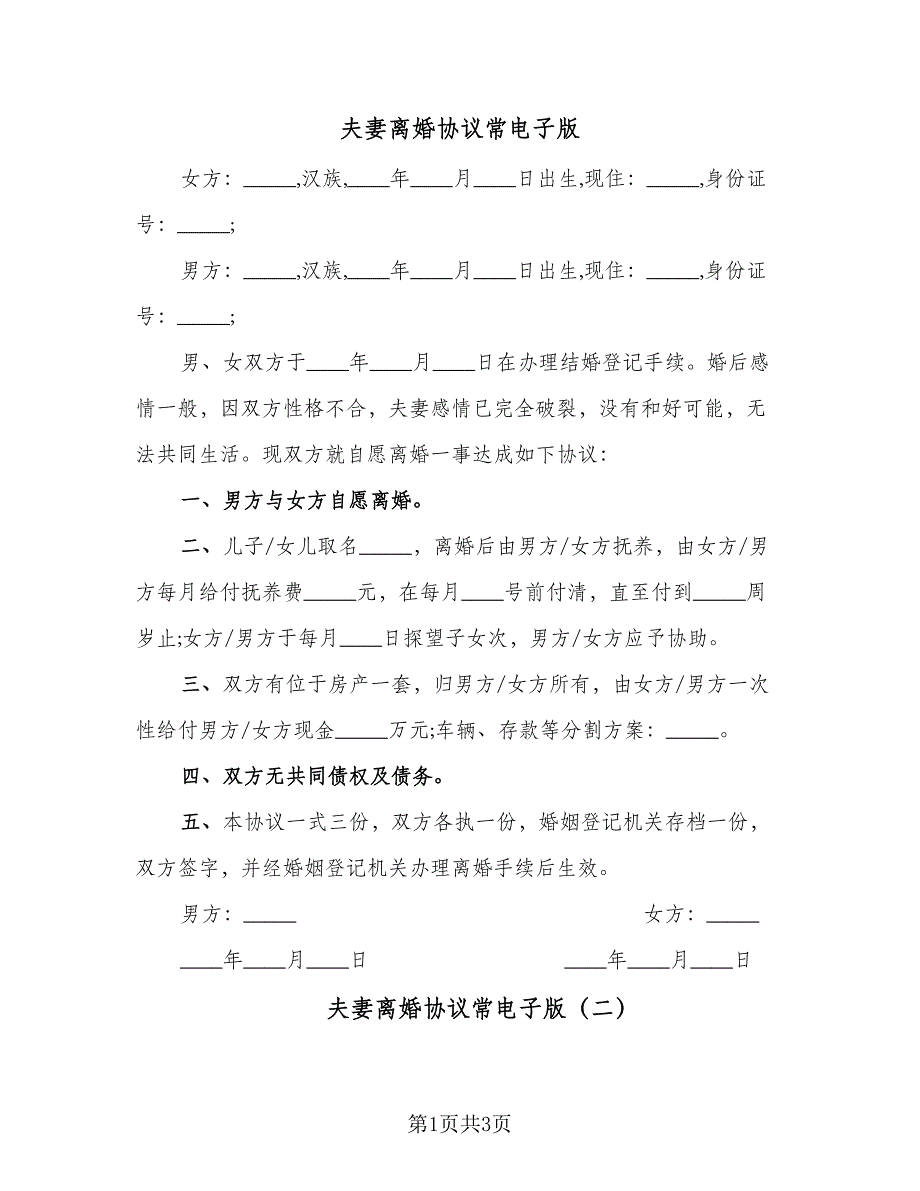 夫妻离婚协议常电子版
女方：_____,汉族,____年____月____日出生,现住：_____,身份证
号：_____;
男方：_____,汉族,____年____月____日出生,现住：_____,身份证
号：_____;
男、女双方于____年____月____日在办理结婚登记手续。婚后感
情一般，因双方性格不合，夫妻感情已完全破裂，没有和好可能，无
法共同生活。现双方就自愿离婚一事达成如下协议：
一、男方与女方自愿离婚。
二、儿子/女儿取名_____，离婚后由男方/女方抚养，由女方/男
方每月给付抚养费_____元，在每月____号前付清，直至付到_____周
岁止;女方/男方于每月____日探望子女次，男方/女方应予协助。
三、双方有位于房产一套，归男方/女方所有，由女方/男方一次
性给付男方/女方现金_____万元;车辆、存款等分割方案：_____。
四、双方无共同债权及债务。
五、本协议一式三份，双方各执一份，婚姻登记机关存档一份，
双方签字，并经婚姻登记机关办理离婚手续后生效。
男方：_____ 女方：_____
____年____月____日 ____年____月____日
夫妻离婚协议常电子版（二）
第1页共3页